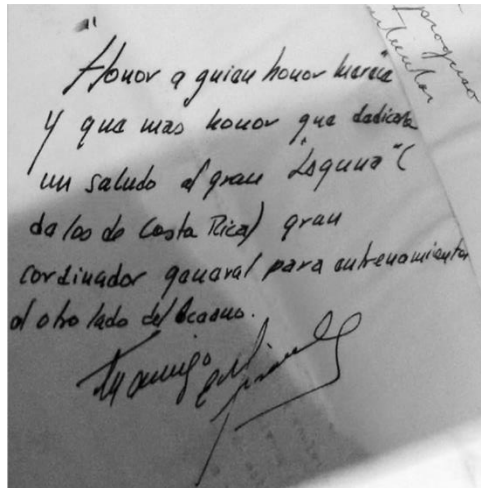 "Honor a quien honor merece"
Y que mas honor que dedicarle
un saludo al gran "Laguna" (
de los de Costa Rica) gran
cordinador general para entrenamientos
al otro lado del Oceano.
Tu amigo
progreso